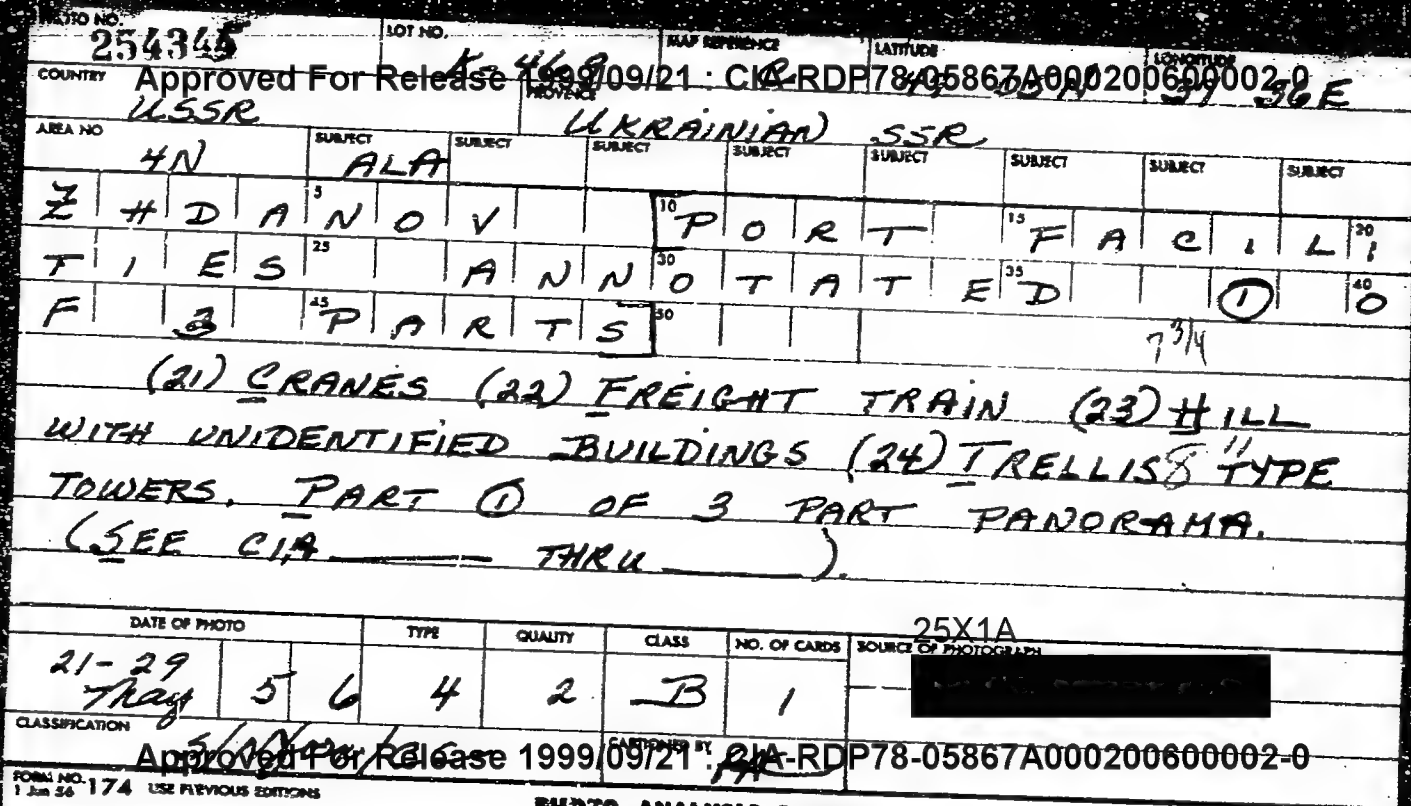 PHOTO NO. LOT NO. MAP REFERENCE LATITUDE LONGITUDE
254345
Approved For Release 1999/09/21 : CIA-RDP78-05867A000200600002-0
COUNTRY PROVINCE
USSR UKRAINIAN SSR
AREA NO SUBJECT SUBJECT SUBJECT SUBJECT SUBJECT SUBJECT SUBJECT SUBJECT
4N ALA
ZHDANOV PORT FACILI
TIES ANNOTATED ① O
F 3 PARTS
7 3/4
(21) CRANES (22) FREIGHT TRAIN (23) HILL
WITH UNIDENTIFIED BUILDINGS (24) TRELLIS TYPE
TOWERS. PART ① OF 3 PART PANORAMA.
(SEE CIA THRU ).
25X1A
DATE OF PHOTO TYPE QUALITY CLASS NO. OF CARDS SOURCE OF PHOTOGRAPH
21-29 May 5 6 4 2 B 1
CLASSIFICATION CAPTIONED BY
Approved For Release 1999/09/21 : CIA-RDP78-05867A000200600002-0
FORM NO. 174 USE PREVIOUS EDITIONS
1 Jun 56